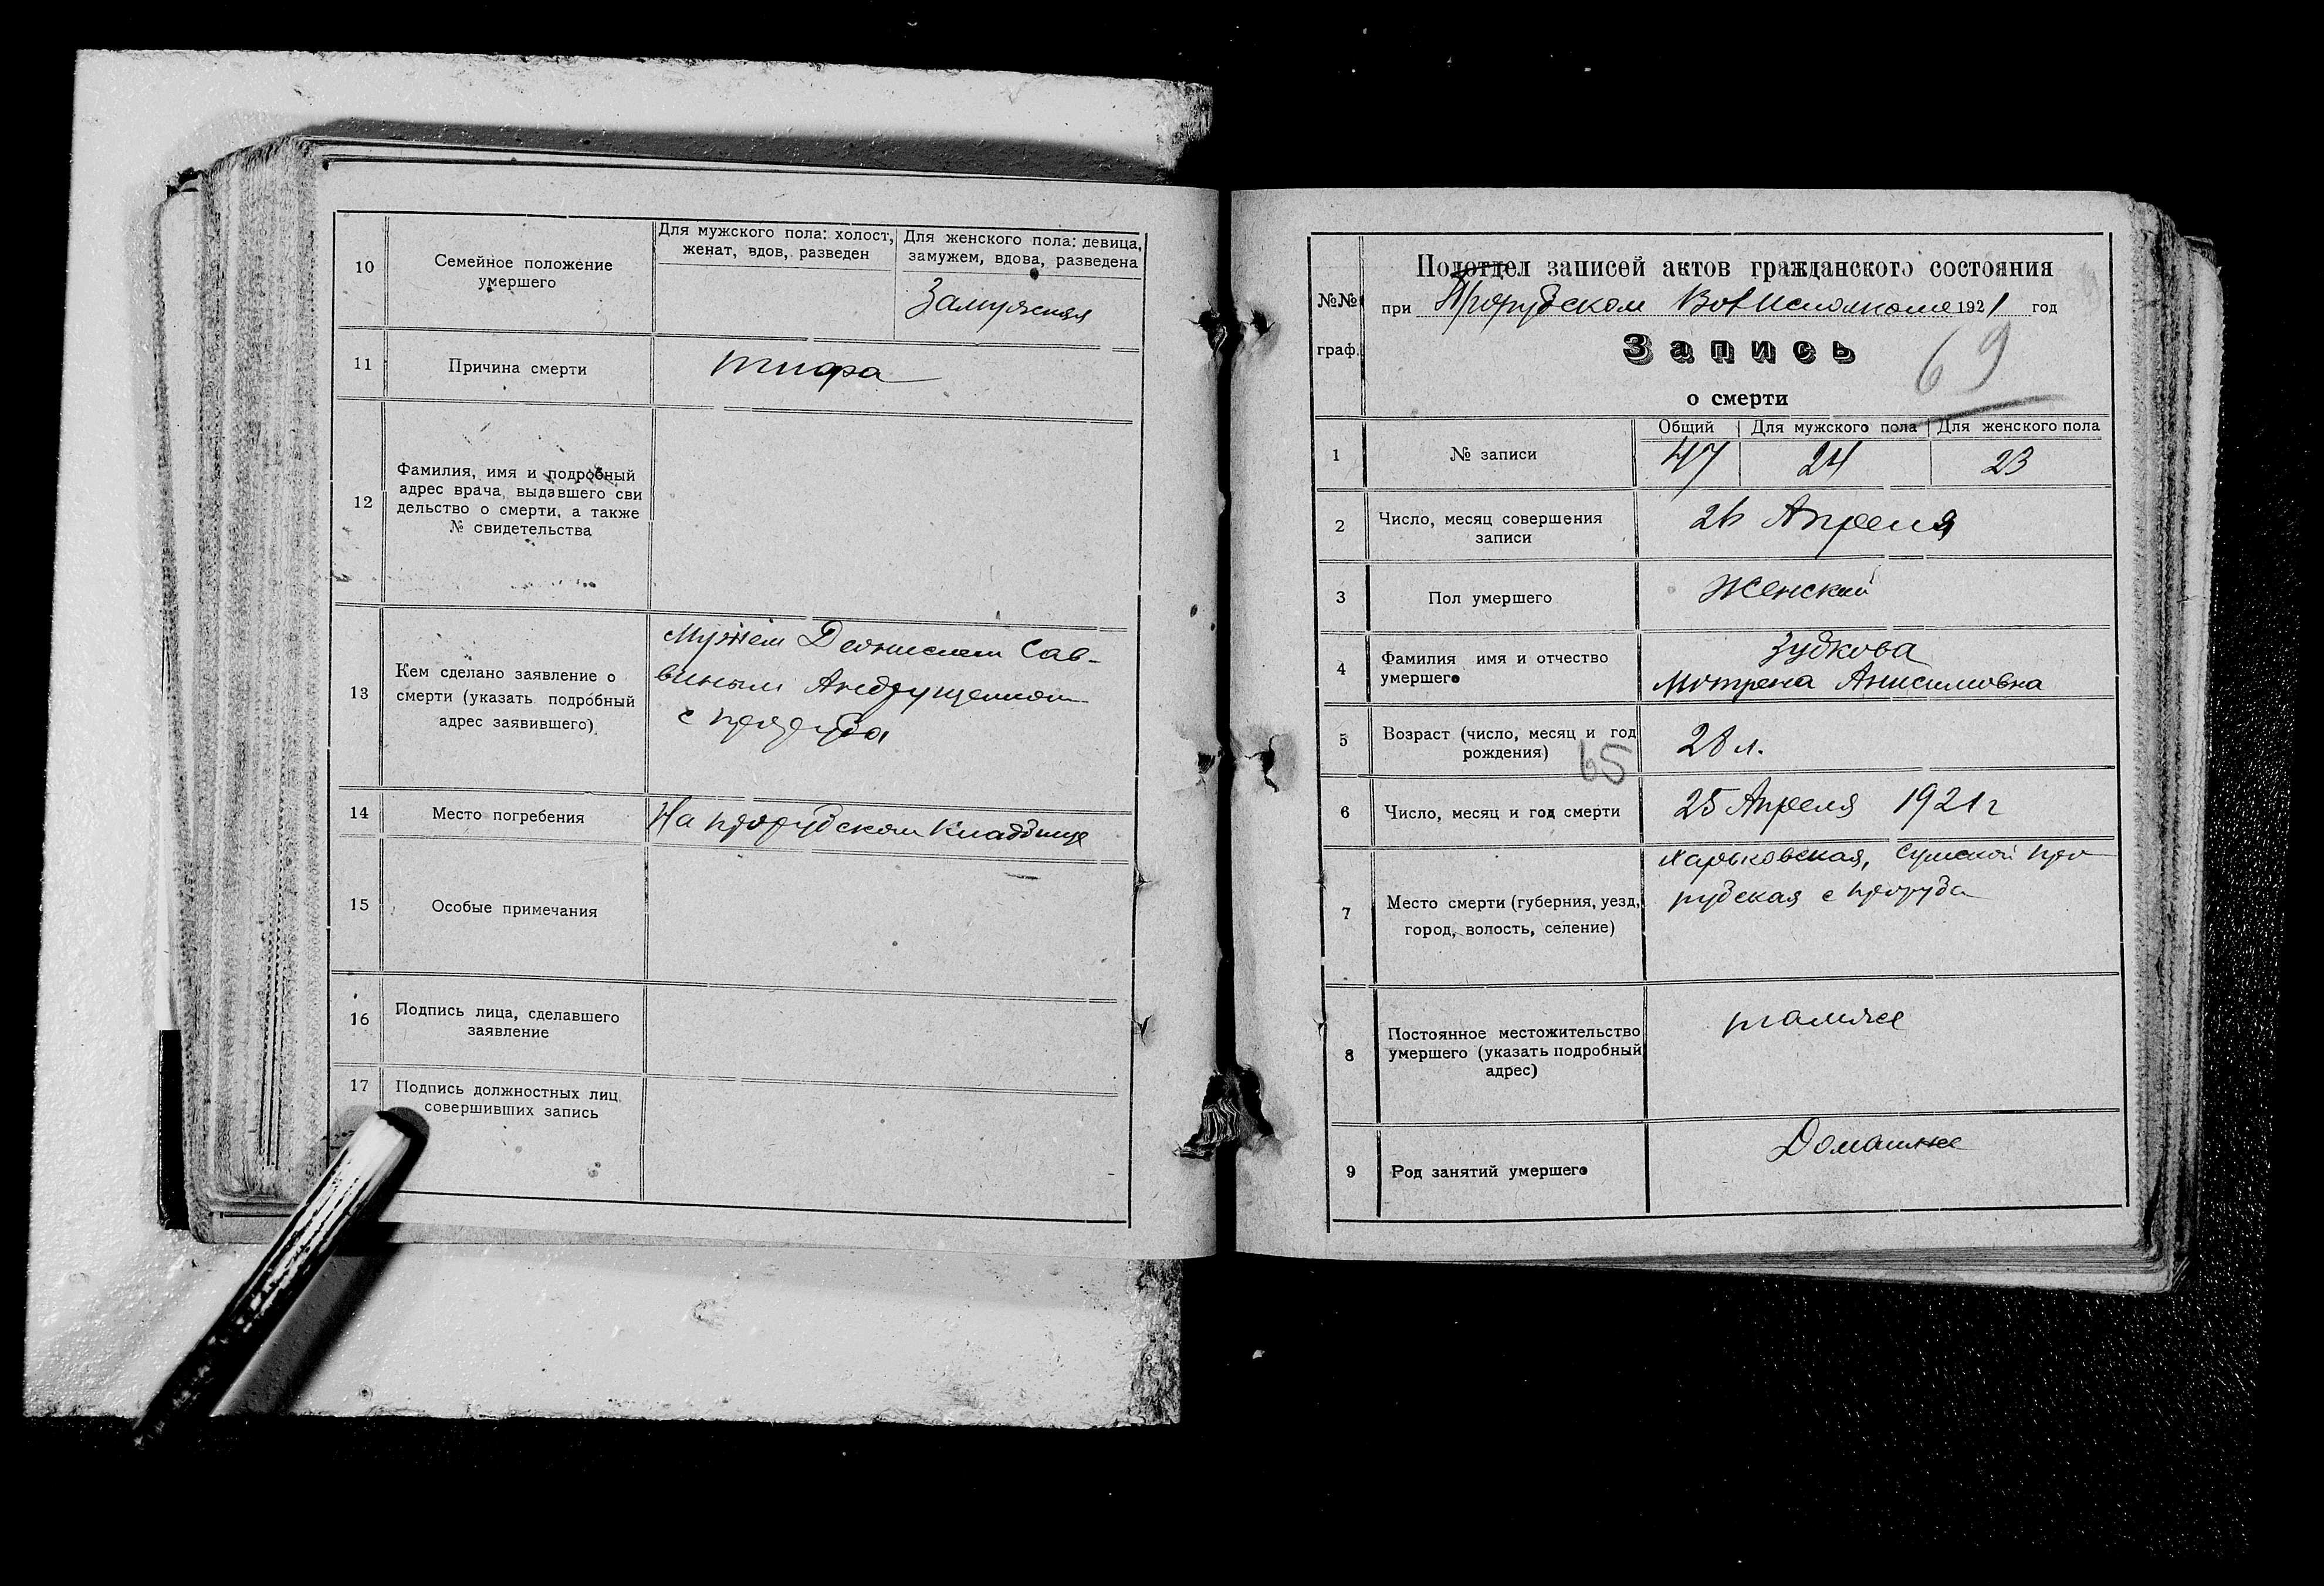 10
Семейное положение
умершего
Для мужского пола: холост,
женат, вдов, разведен
Для женского пола: девица,
замужем, вдова, разведена
Замужняя
11
Причина смерти
тифа
12
Фамилия, имя и подробный
адрес врача выдавшего сви
дельство о смерти, а также
№ свидетельства
13
Кем сделано заявление о
смерти (указать подробный
адрес заявившего)
Мужем Деонисием Сав-
виным Андрущенком
с Проруба
14
Место погребения
На прорубском кладбище
15
Особые примечания
16
Подпись лица, сделавшего
заявление
17
Подпись должностных лиц
совершивших запись
№№
граф.
Подотдел записей актов гражданского состояния
при Прорубском Волисполкоме 1921 год
Запись
69
о смерти
1
№ записи
Общий
Для мужского пола
Для женского пола
47
24
23
2
Число, месяц совершения
записи
26 Апреля
3
Пол умершего
Женский
4
Фамилия имя и отчество
умершего
Зубкова
Мотрена Анисимовна
5
Возраст (число, месяц и год
рождения)
65
28 л.
6
Число, месяц и год смерти
25 Апреля 1921 г
7
Место смерти (губерния, уезд,
город, волость, селение)
Харьковская, Сумской Про
рубская с Проруба
8
Постоянное местожительство
умершего (указать подробный
адрес)
тамже
9
Род занятий умершего
Домашнее